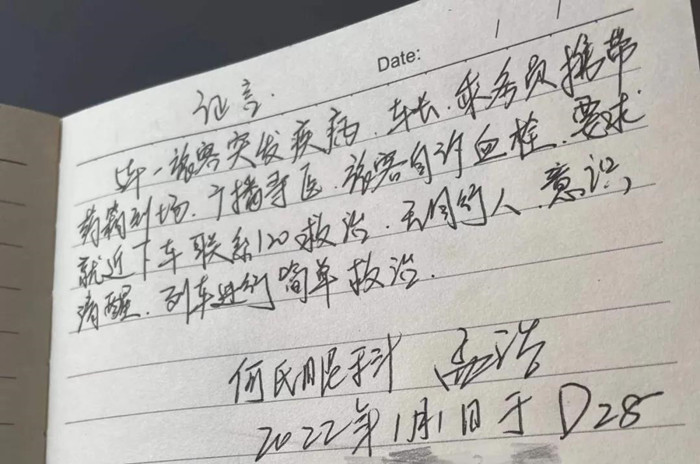 Date:
证言.
5车一旅客突发疾病.车长.乘务员携带
药箱到场.广播寻医.旅客自诉血栓.要求
就近下车联系120救治.无同行人.意识
清醒.列车进行简单救治.
何氏眼科 孟浩
2022年1月1日于D28